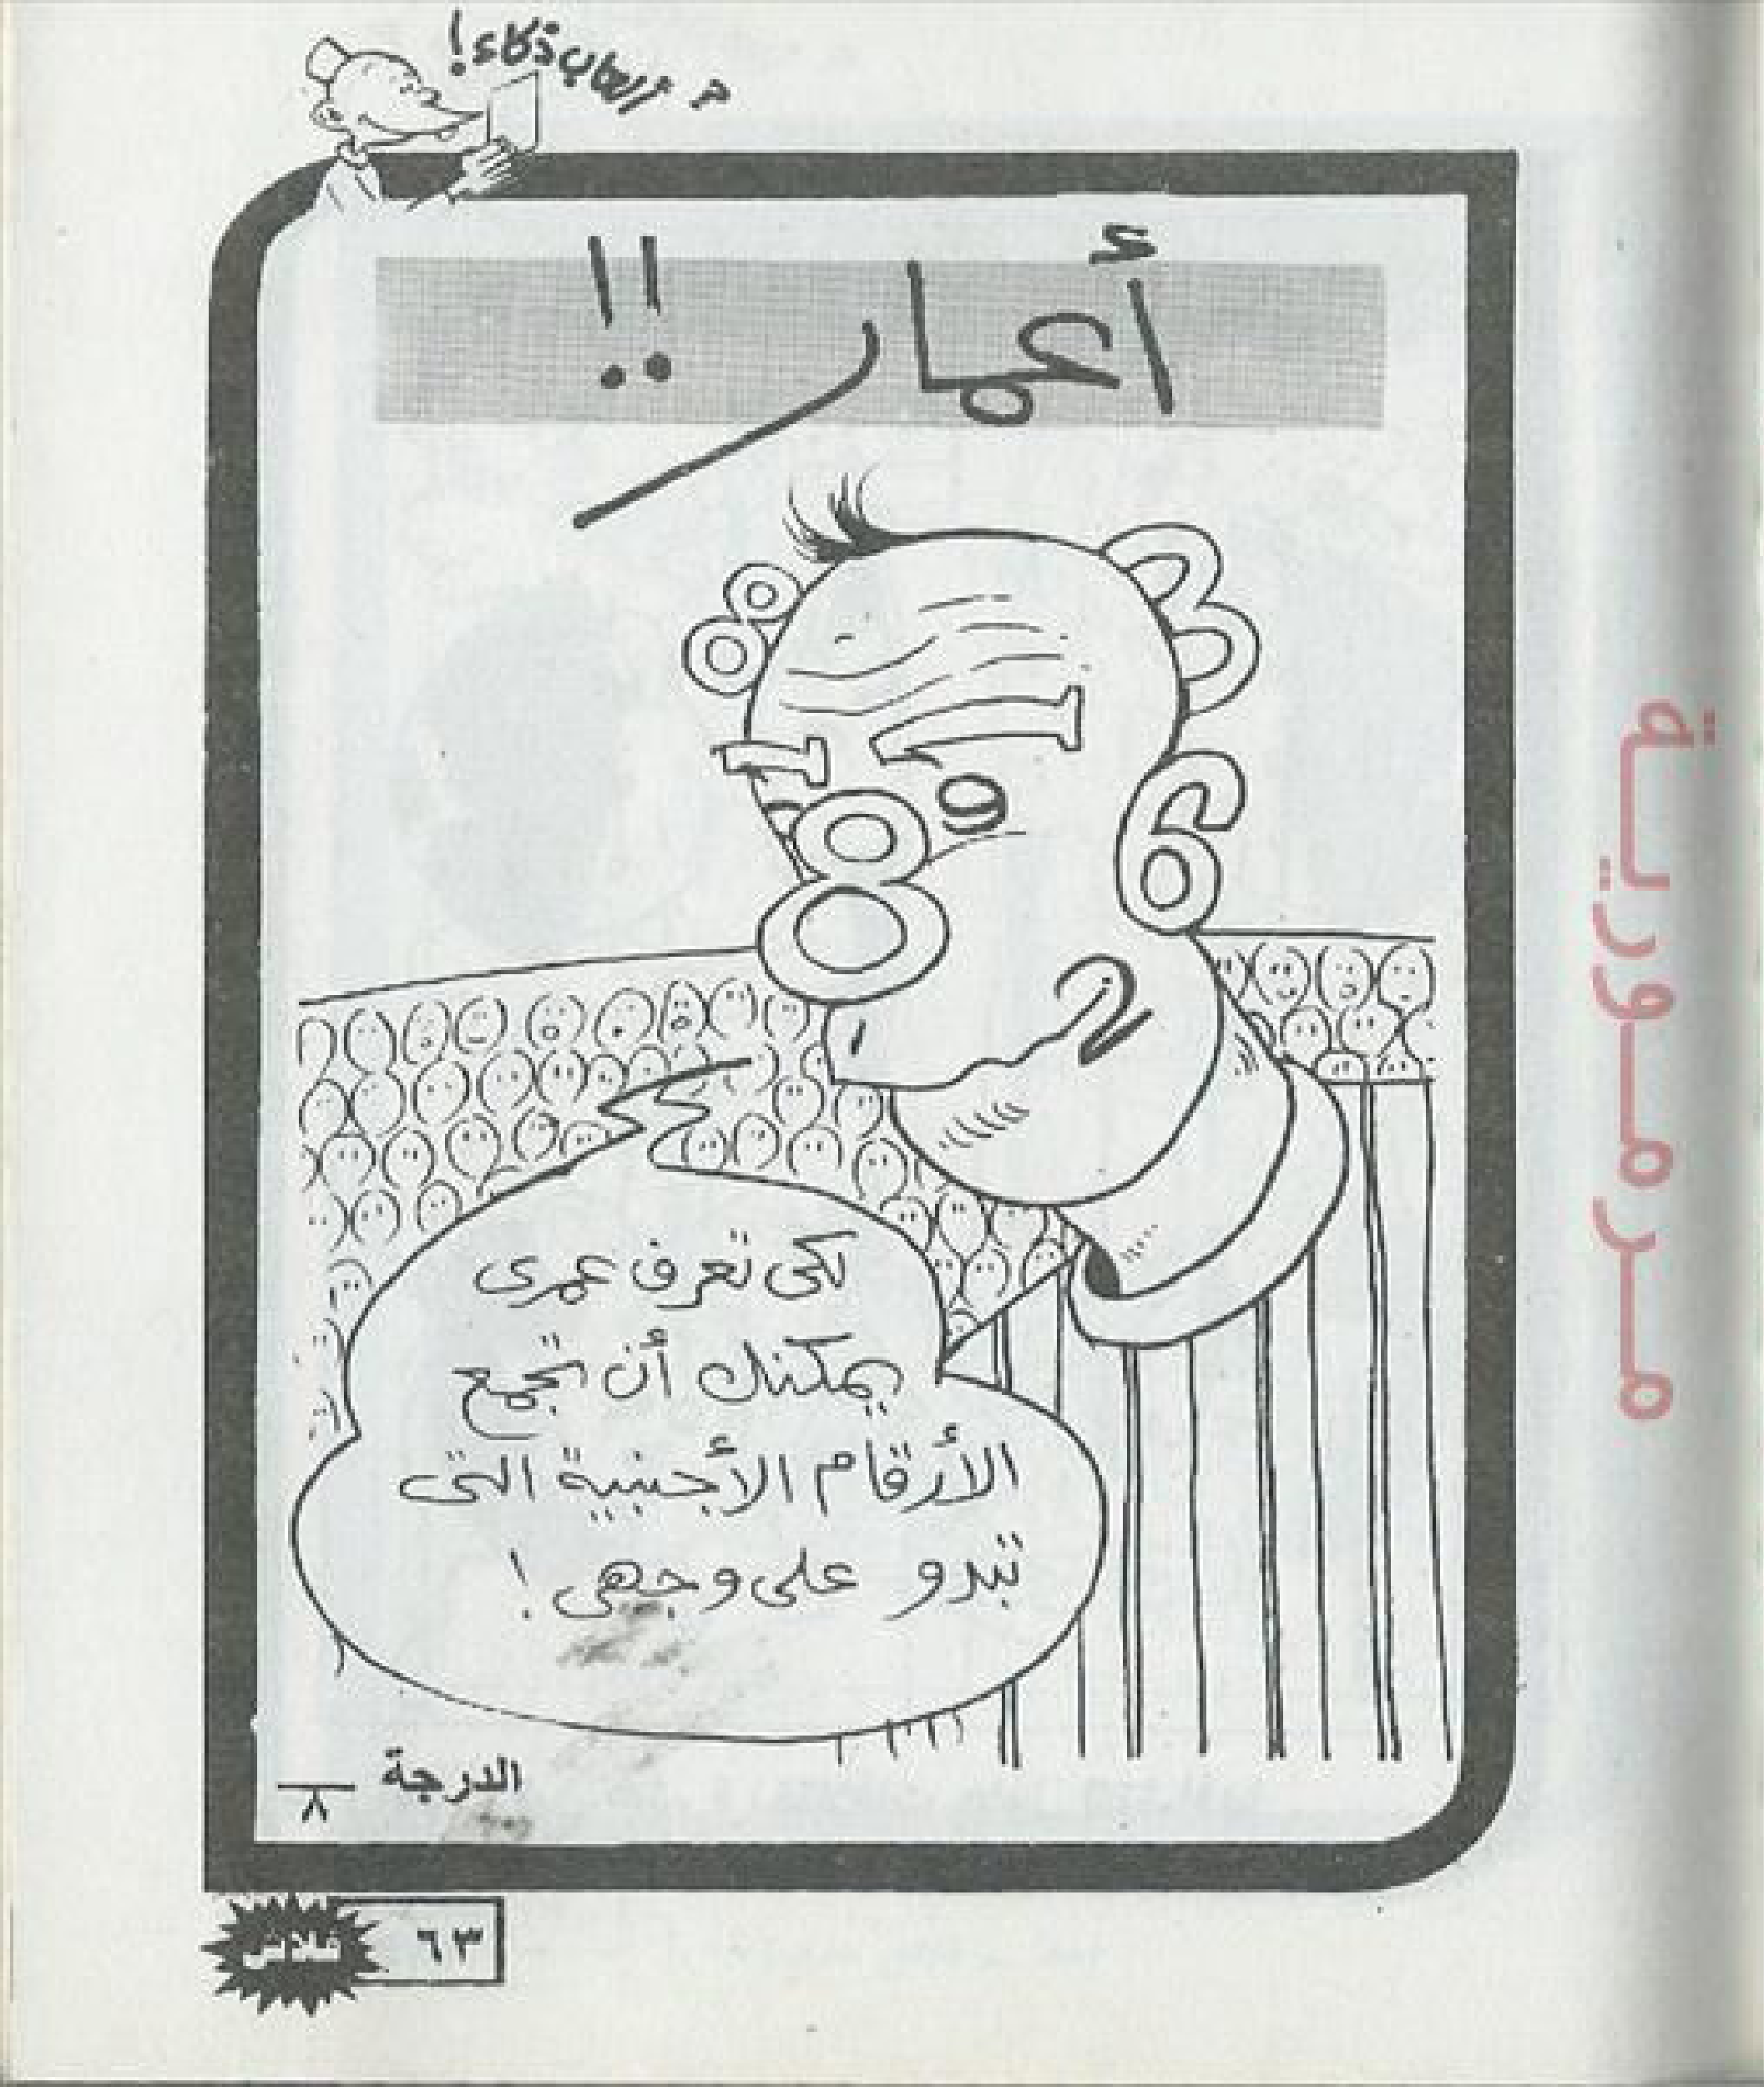 م ألعاب ذكاء!
أعمار !!
8
3
1
1
9
8
6
2
لكى تعرف عمرى
يمكنك أن تجمع
الأرقام الأجنبية التى
تبدو على وجهى !
الدرجة
٨
٦٣
فلاش
مرمورية